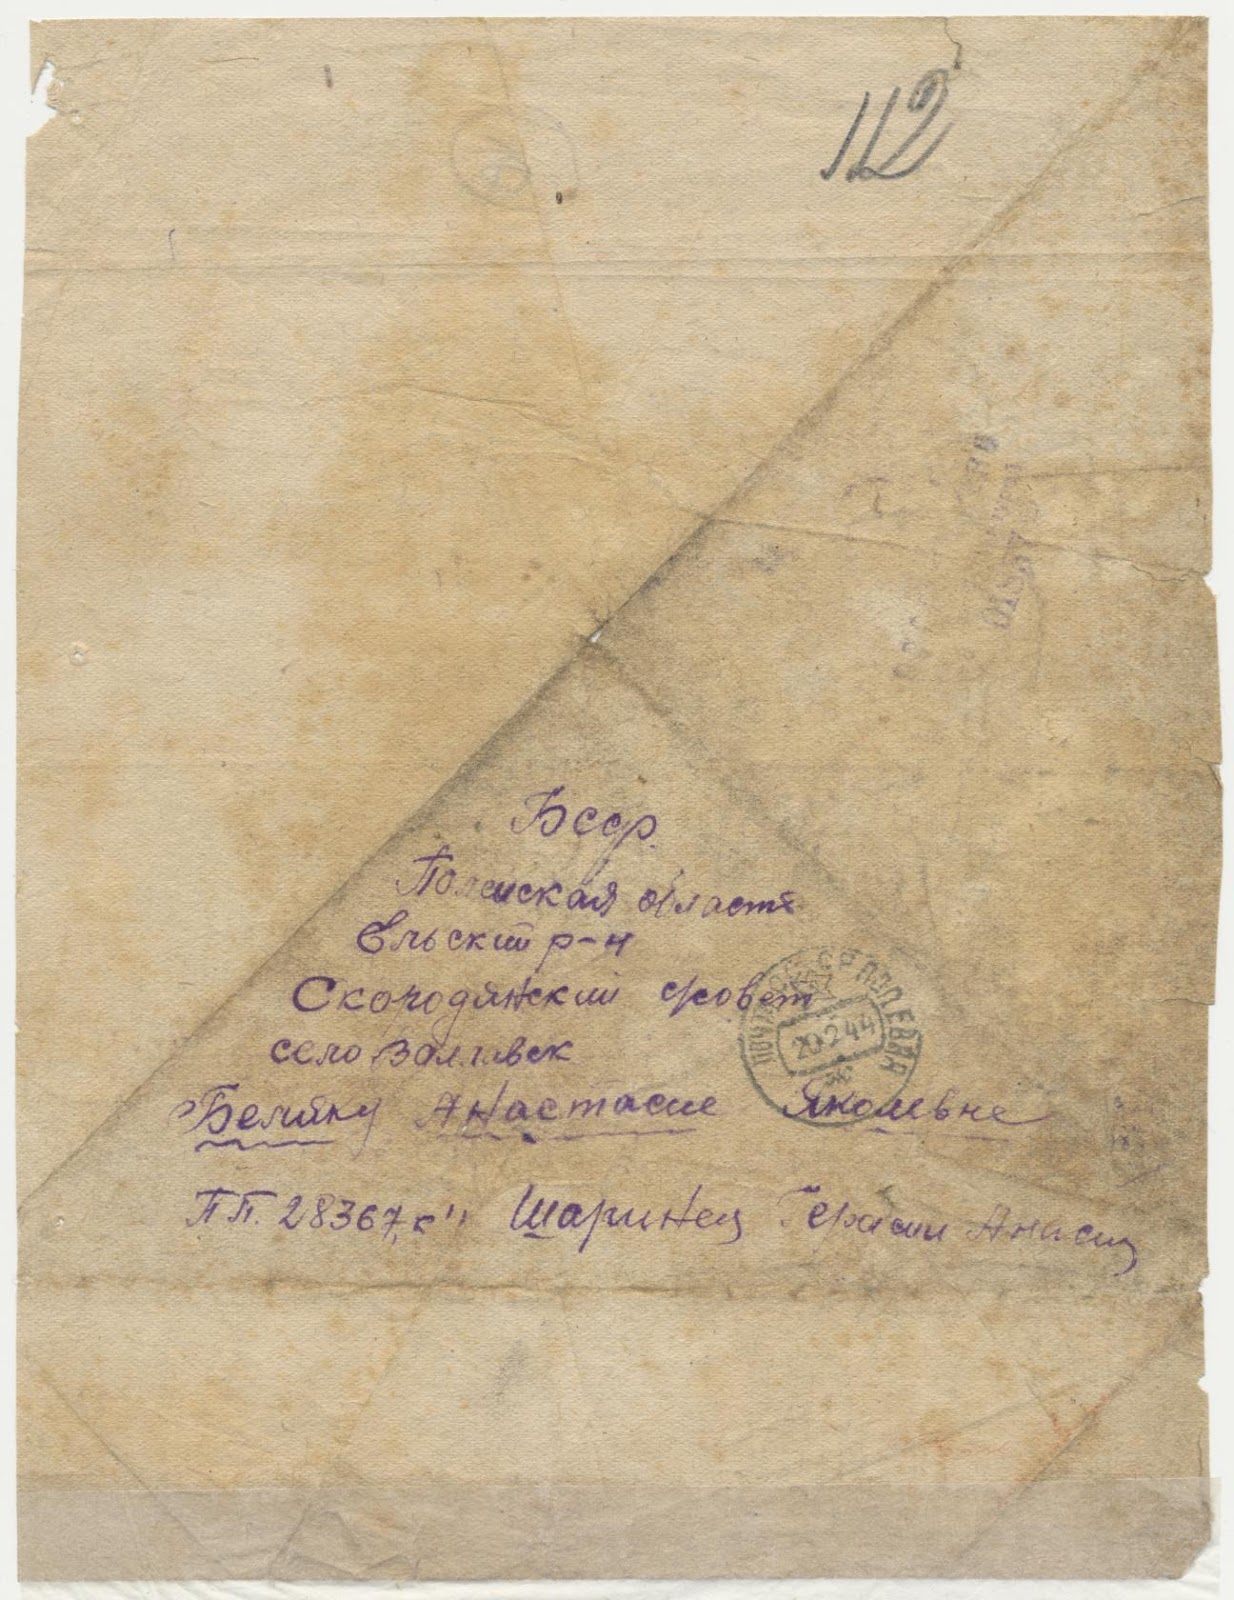 112
Бсср.
Полеская область
Ельский р-н
Скородянский совет
село Валлавск
Беляку Анастасие Яколевне
ПП. 28367 "к" Шаринец Герасим Анисим
ПОЧТА СССР ПОЛЕВАЯ
20 2 44